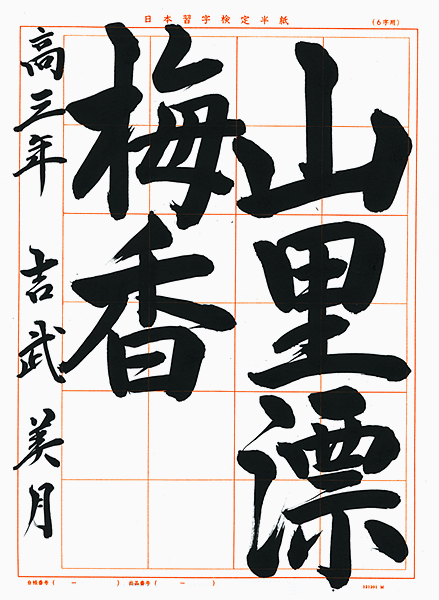 日本習字検定半紙
(6字用)
山里漂
梅香
高三年 吉武 美月
台帳番号( ー ) 出品番号( ー )